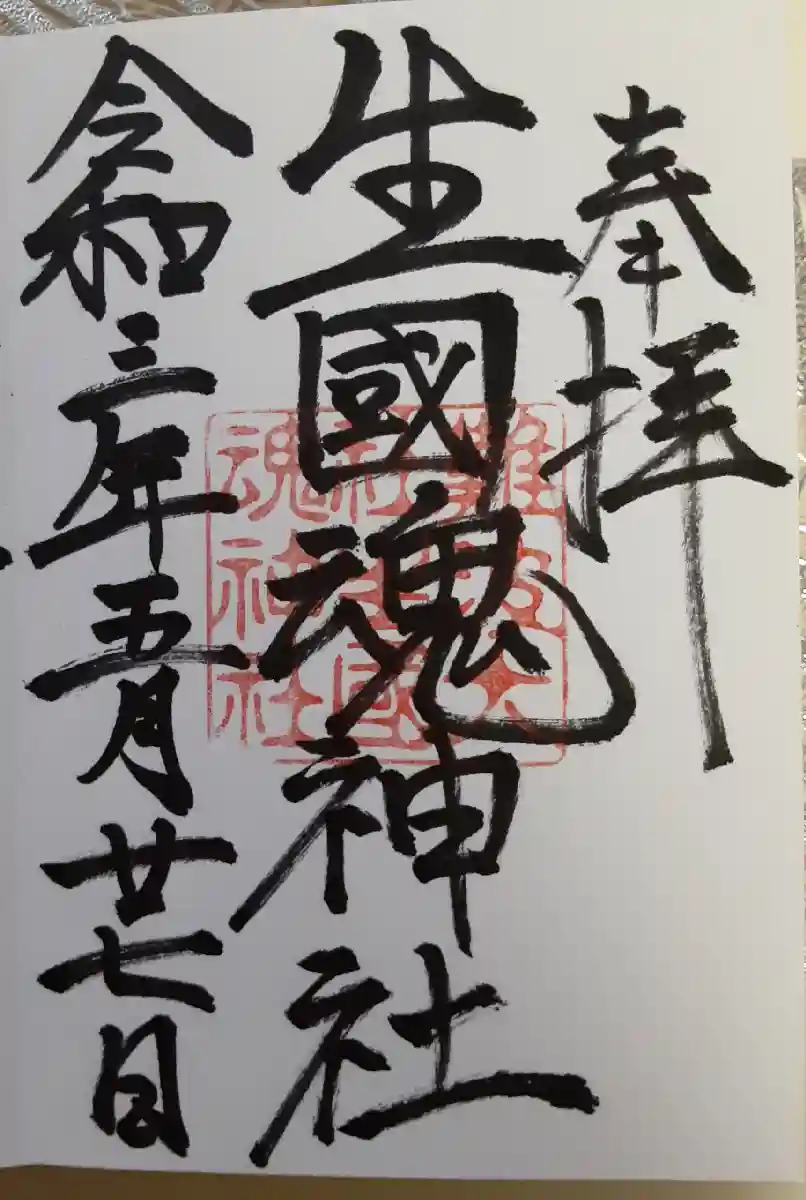 奉拝
生國魂神社
令和三年五月廿七日
難波大
社生國
魂神社